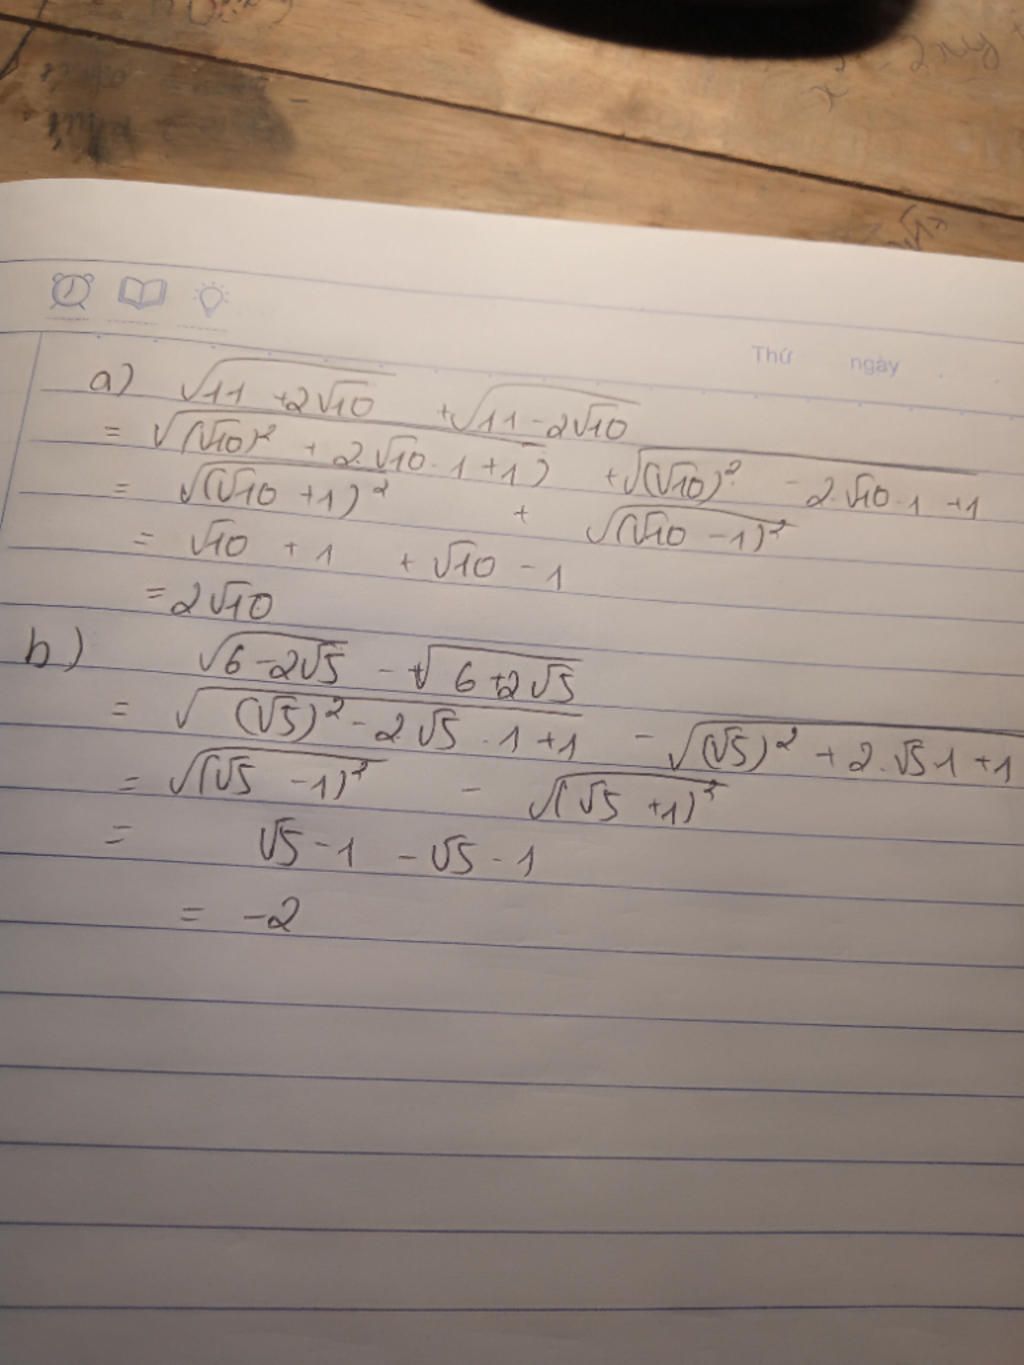 x² - 2xy +
Thứ ngày
a) √(11 + 2√10) + √(11 - 2√10)
= √((√10)² + 2.√10.1 + 1) + √((√10)² - 2.√10.1 + 1)
= √((√10 + 1)²) + √((√10 - 1)²)
= √10 + 1 + √10 - 1
= 2√10
b) √(6 - 2√5) - √(6 + 2√5)
= √((√5)² - 2√5.1 + 1) - √((√5)² + 2.√5.1 + 1)
= √((√5 - 1)²) - √((√5 + 1)²)
= √5 - 1 - √5 - 1
= -2